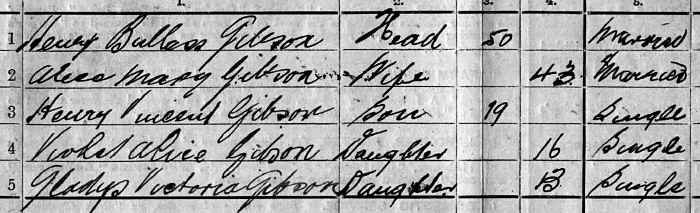 1. 2. 3. 4. 5.
1 Henry Bullass Gibson Head 50 Married
2 Alice Mary Gibson Wife 43 Married
3 Henry Vincent Gibson Son 19 Single
4 Violet Alice Gibson Daughter 16 Single
5 Gladys Victoria Gibson Daughter 13 Single